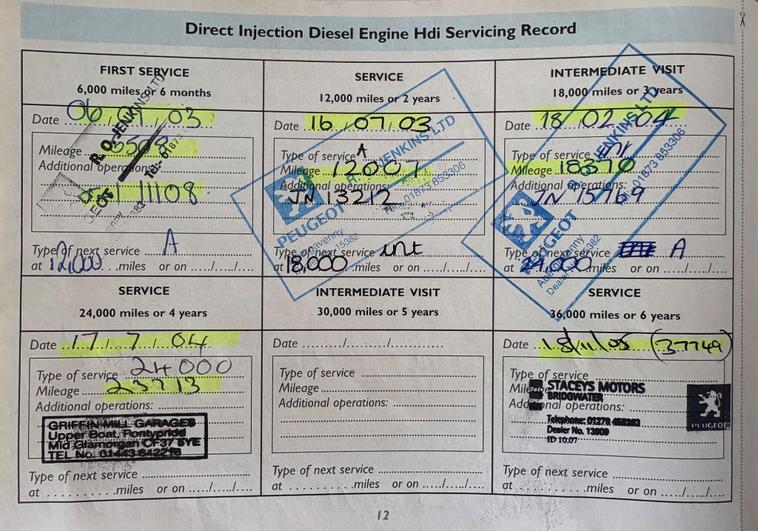 Direct Injection Diesel Engine Hdi Servicing Record
FIRST SERVICE
6,000 miles or 6 months
Date 06 / 01 / 03
Mileage
Additional operations:
11108
Type of next service A
at 12,000 miles or on ...../...../.....
SERVICE
12,000 miles or 2 years
Date 16 / 07 / 03
Type of service A
Mileage 12007
Additional operations:
JN 13212
PEUGEOT
JENKINS LTD
01873 853306
Type of next service int
at 18,000 miles or on ...../...../.....
INTERMEDIATE VISIT
18,000 miles or 3 years
Date 18 02 04
Type of service int
Mileage 18370
Additional operations:
JN 15769
PEUGEOT
JENKINS LTD
01873 853306
Type of next service A
at 24,000 miles or on ...../...../.....
SERVICE
24,000 miles or 4 years
Date 17 / 7 / 04
Type of service 24000
Mileage 23713
Additional operations:
GRIFFIN MILL GARAGES
Upper Boat, Pontypridd
Mid Glamorgan CF37 5YE
TEL No. 01443 842216
Type of next service
at miles or on ...../...../.....
INTERMEDIATE VISIT
30,000 miles or 5 years
Date ........./........./.........
Type of service
Mileage
Additional operations:
Type of next service
at miles or on ...../...../.....
SERVICE
36,000 miles or 6 years
Date 18/11/05 (37749)
Type of service
Mileage
Additional operations:
STACEYS MOTORS
BRIDGWATER
Telephone: 01278
Dealer No.
PEUGEOT
Type of next service
at miles or on ...../...../.....
12